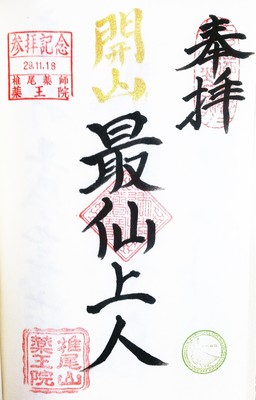 奉拝
開山
最仙上人
参拝記念
29.11.18
椎尾薬師
薬王院
椎尾山
薬王院